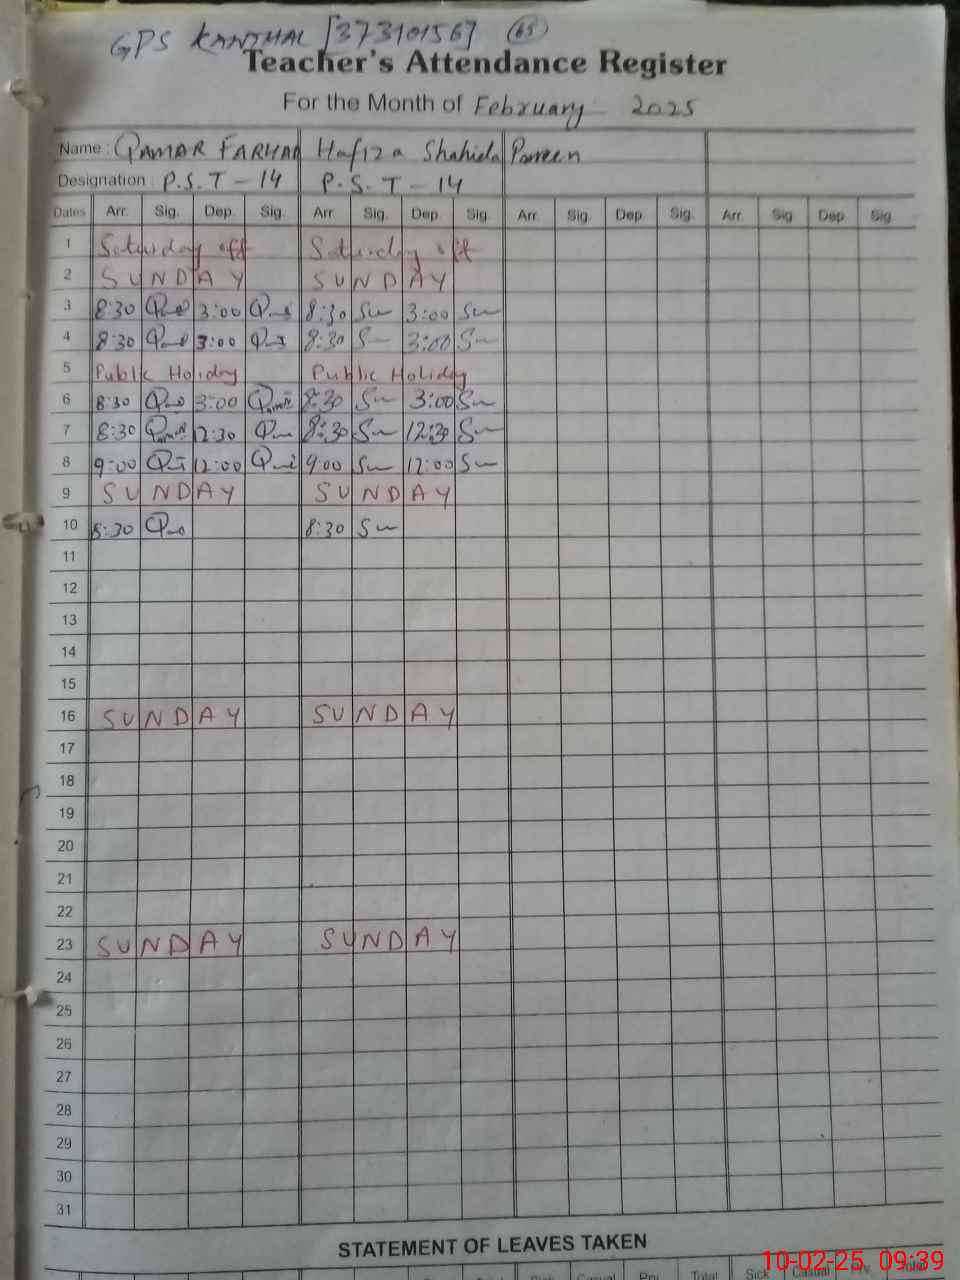 GPS KANTHAL [37310156] 65
Teacher's Attendance Register
For the Month of February 2025
Name : QAMAR FARHAD Hafiza Shahida Parveen
Designation : P.S.T - 14 P.S.T - 14
Dates Arr. Sig. Dep. Sig. Arr. Sig. Dep. Sig. Arr. Sig. Dep. Sig. Arr. Sig Dep. Sig.
1 Saturday off Saturday off
2 SUNDAY SUNDAY
3 8:30 3:00 8:30 3:00
4 8:30 3:00 8:30 3:00
5 Public Holiday Public Holiday
6 8:30 3:00 8:30 3:00
7 8:30 12:30 8:30 12:30
8 9:00 12:00 9:00 12:00
9 SUNDAY SUNDAY
10 8:30 8:30
11
12
13
14
15
16 SUNDAY SUNDAY
17
18
19
20
21
22
23 SUNDAY SUNDAY
24
25
26
27
28
29
30
31
STATEMENT OF LEAVES TAKEN
Casual Prv. Total Sick Casual Prv. Total
10-02-25 09:39